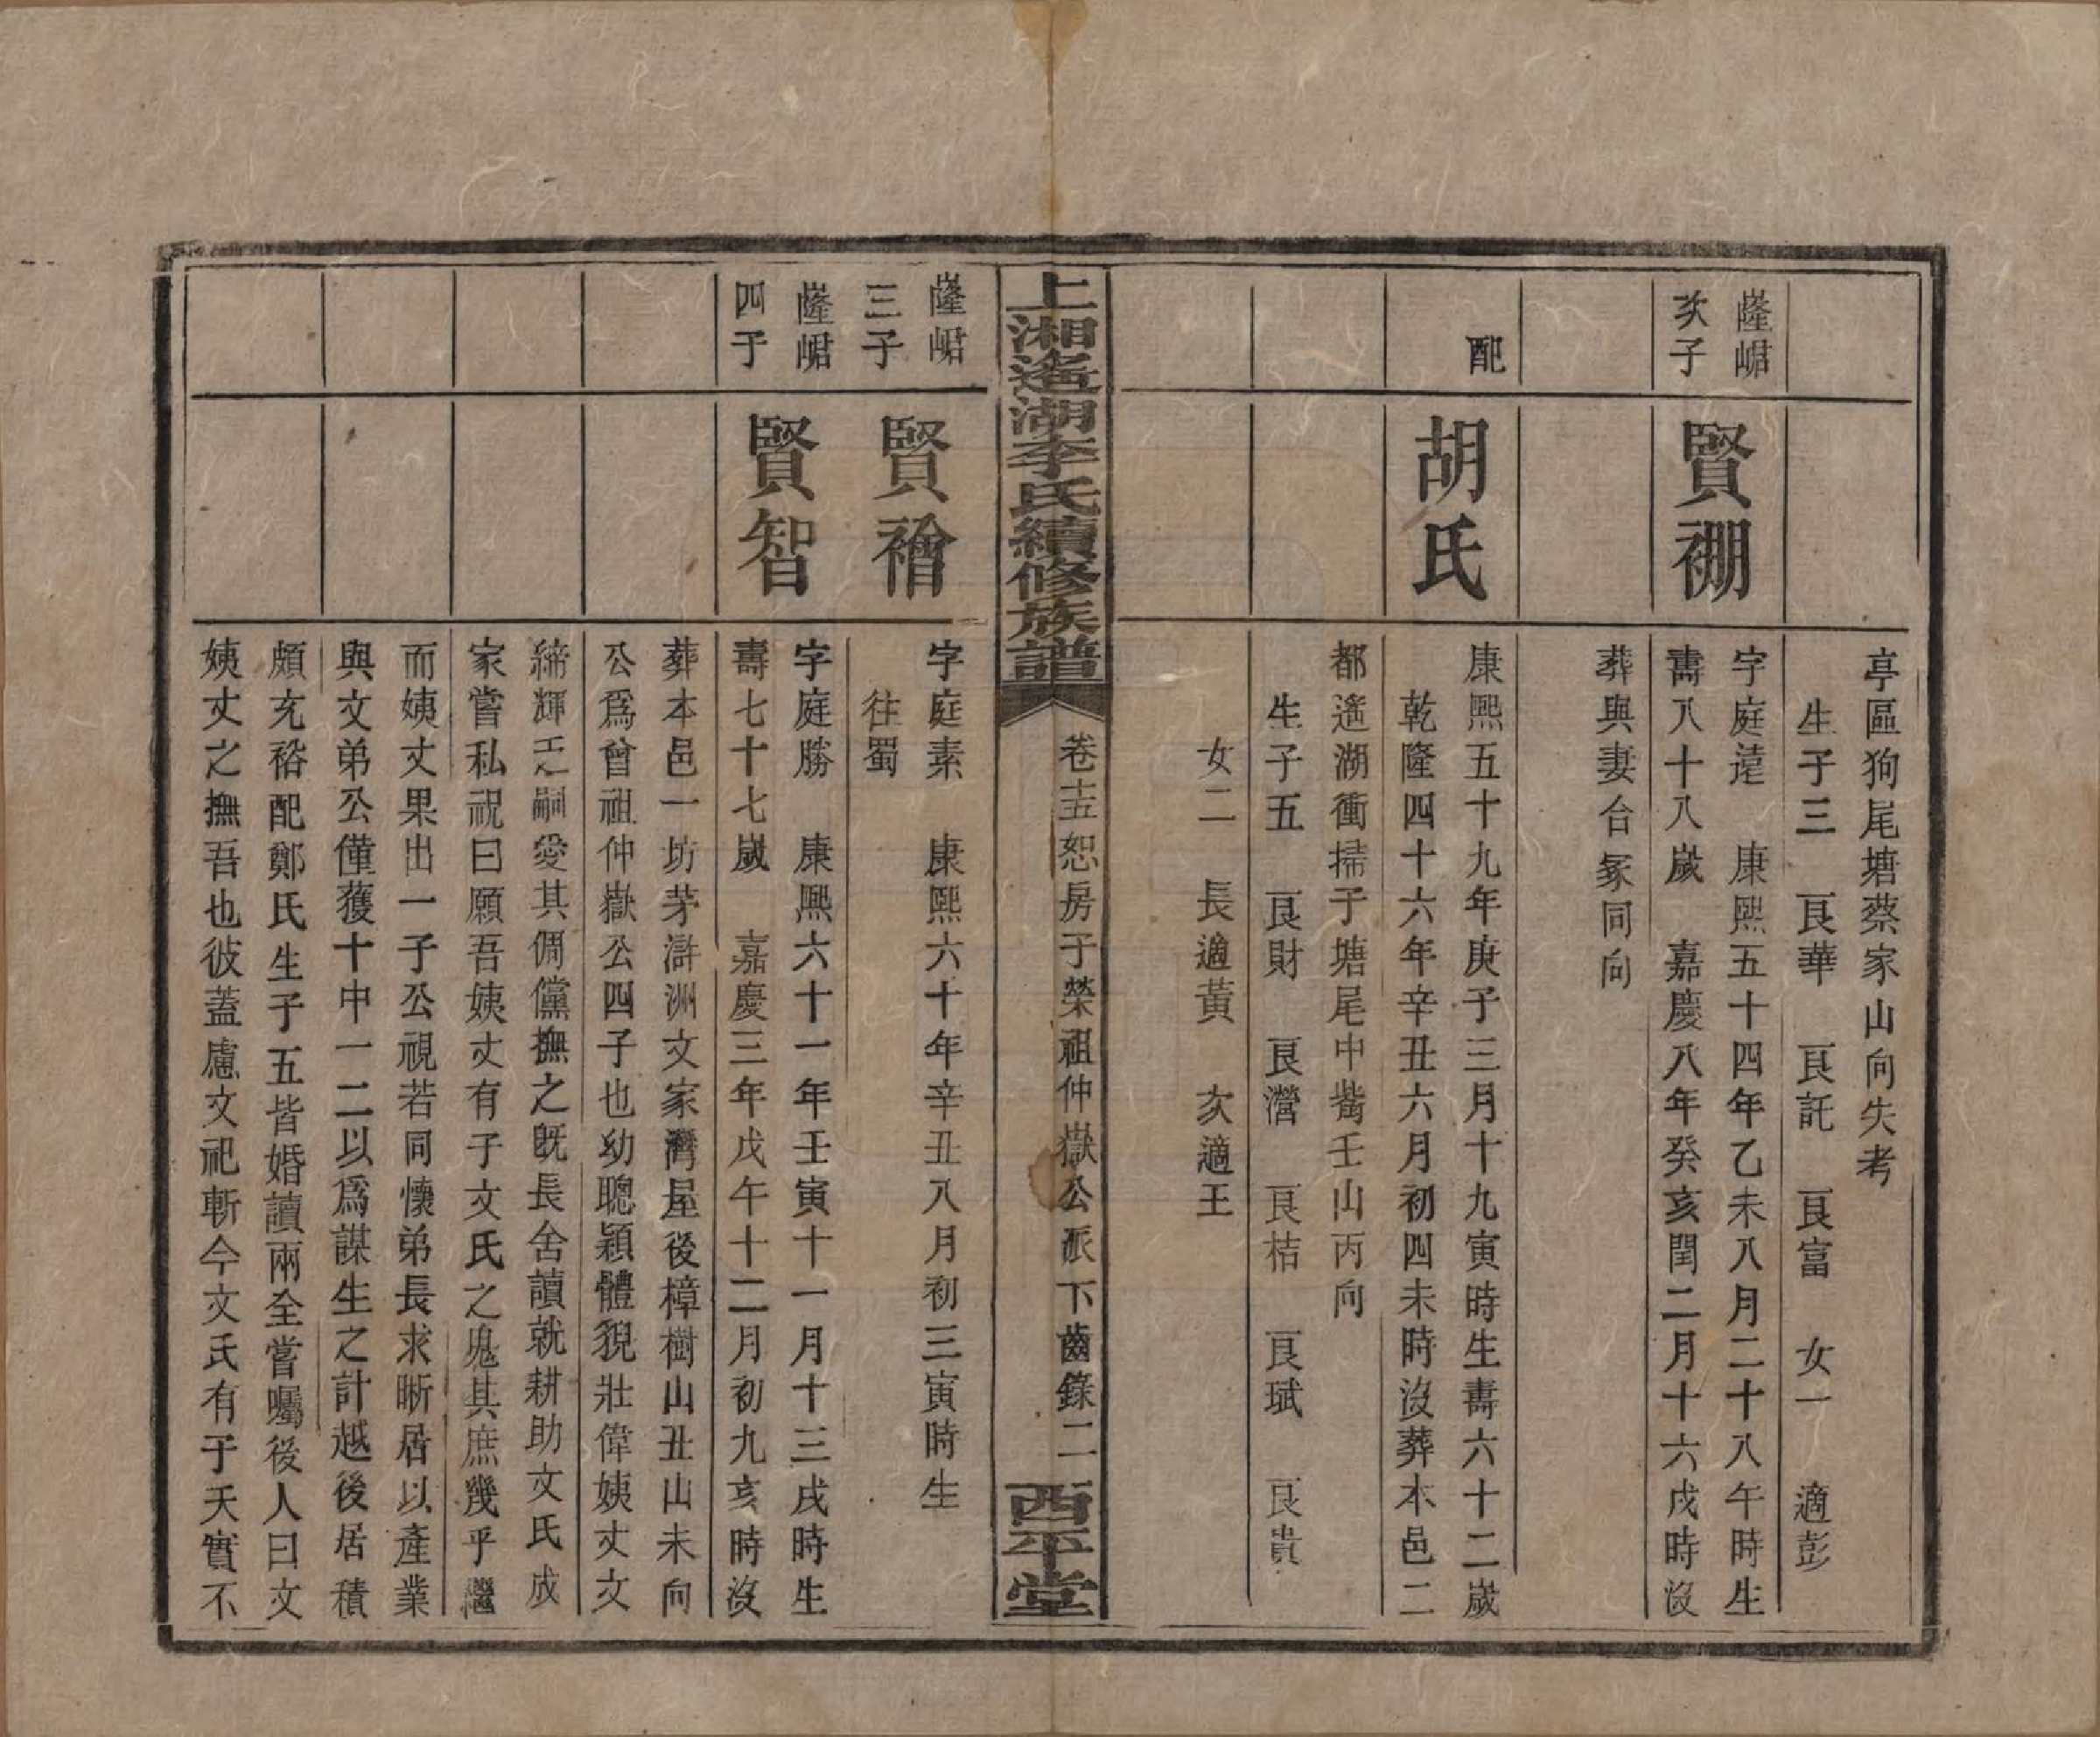 亭區狗尾塘蔡家山向失考
生子三　良華　良託　良富　女一　適彭
隆峮
次子
賢祤
字庭遠　康熙五十四年乙未八月二十八午時生
壽八十八歲　嘉慶八年癸亥閏二月十六戌時沒
葬與妻合冢同向
配
胡氏
康熙五十九年庚子三月十九寅時生壽六十二歲
乾隆四十六年辛丑六月初四未時沒葬本邑二
都遙湖衝掃子塘尾中嘴壬山丙向
生子五　良財　良瀯　良桔　良珷　良貴
女二　長適黃　次適王
上湘遙湖李氏續修族譜
卷十五恕房子榮祖仲嶽公派下齒錄二
西平堂
隆峮
三子
賢襘
字庭素　康熙六十年辛丑八月初三寅時生
往蜀
隆峮
四子
賢智
字庭勝　康熙六十一年壬寅十一月十三戌時生
壽七十七歲　嘉慶三年戊午十二月初九亥時沒
葬本邑一坊茅滸洲文家灣屋後樟樹山丑山未向
公爲曾祖仲嶽公四子也幼聰穎體貌壯偉姨丈文
締輝乏嗣愛其倜儻撫之旣長舍讀就耕助文氏成
家嘗私祝曰願吾姨丈有子文氏之鬼其庶幾乎繼
而姨丈果出一子公視若同懷弟長求晰居以產業
與文弟公僅獲十中一二以爲謀生之計越後居積
頗充裕配鄭氏生子五皆婚讀兩全嘗囑後人曰文
姨丈之撫吾也彼蓋慮文祀斬今文氏有子天實不